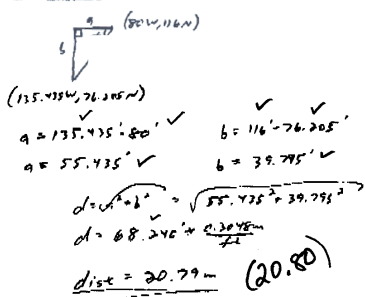 a (80W,116N)
b
(135.435W, 76.205N)
✓ ✓ ✓
a = 135.435' - 80' ✓ b = 116' - 76.205'
a = 55.435' ✓ b = 39.795' ✓
d = √a² + b² = √55.435² + 39.795²
d = 68.240' * 0.3048m/ft
dist = 20.79 m (20.80)